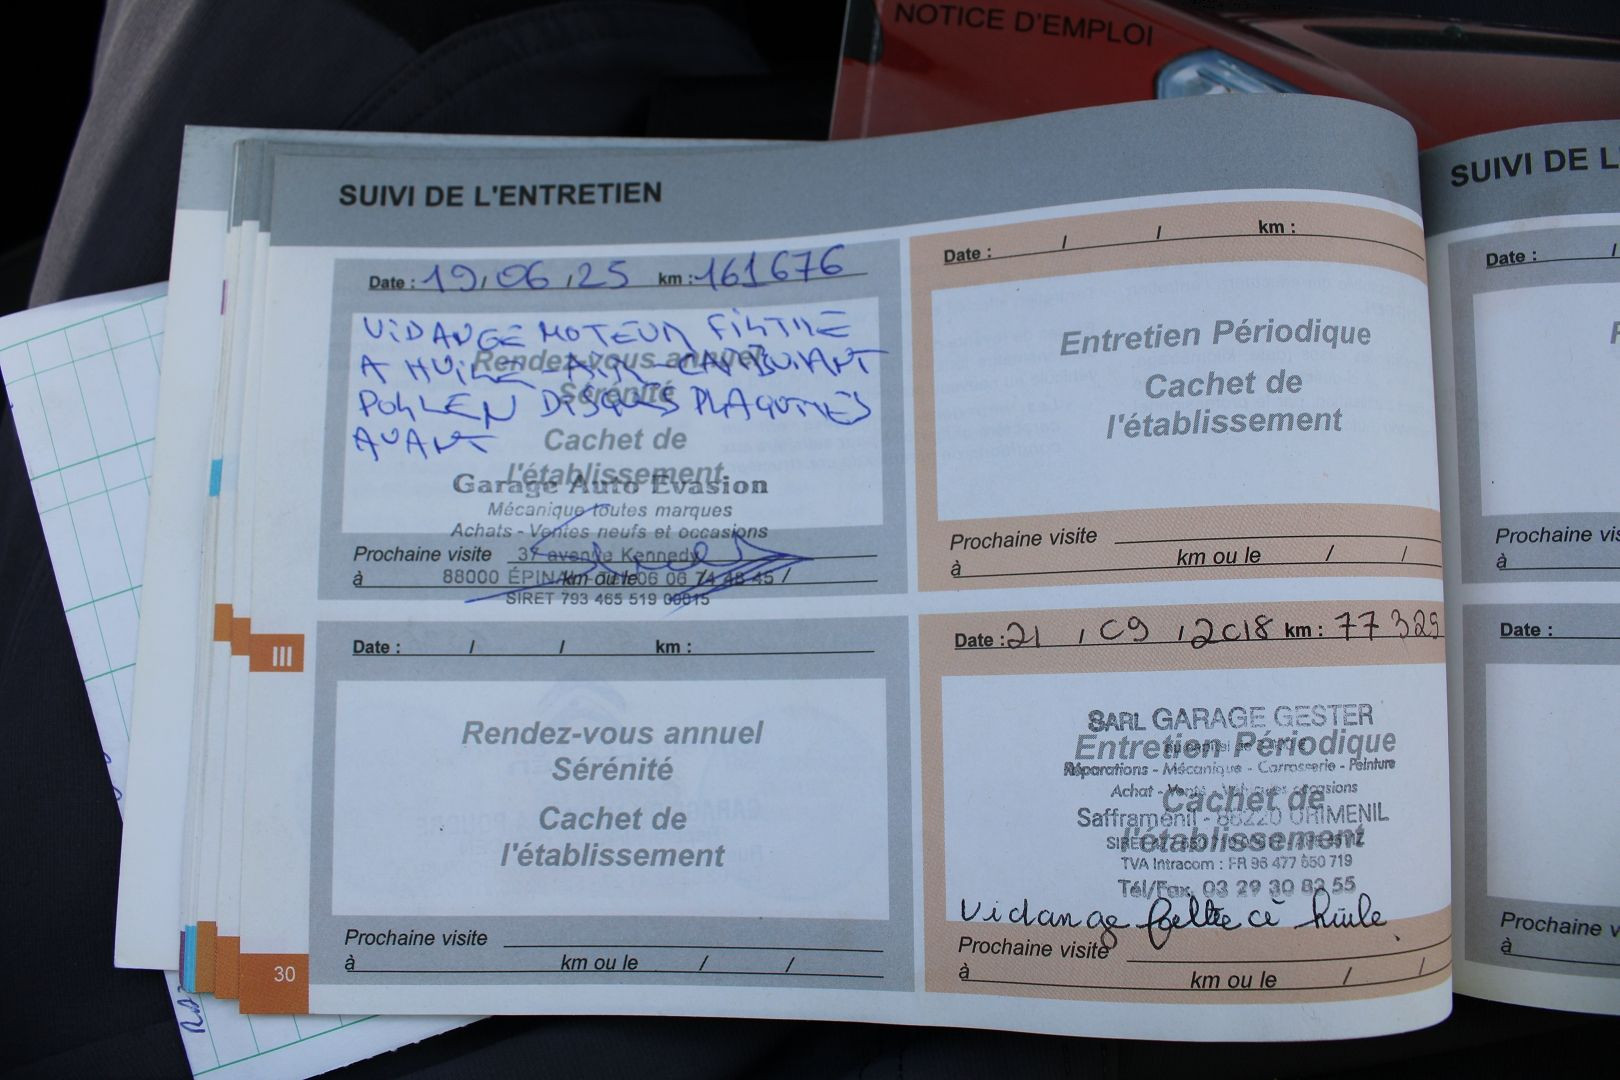 NOTICE D'EMPLOI
SUIVI DE L'ENTRETIEN
Date : 19 / 06 / 25 km : 161676
VIDANGE MOTEUR FILTRE
A HUILE - AIR - CARBURANT
POLLEN DISQUES PLAQUETTES
AVANT
Rendez-vous annuel
Sérénité
Cachet de
l'établissement
Garage Auto Evasion
Mécanique toutes marques
Achats - Ventes neufs et occasions
Prochaine visite 37 avenue Kennedy
à 88000 ÉPINAL km ou le 06 06 74 48 45 /
SIRET 793 465 519 00015
Date : / / km :
Entretien Périodique
Cachet de
l'établissement
Prochaine visite
à km ou le / /
Date : / / km :
Rendez-vous annuel
Sérénité
Cachet de
l'établissement
Prochaine visite
à km ou le / /
Date : 21 / 09 / 2018 km : 77 329
SARL GARAGE GESTER
Entretien Périodique
Réparations - Mécanique - Carrosserie - Peinture
Achat - Vente - Véhicules occasions
Cachet de
Safframénil - 88220 URIMENIL
l'établissement
TVA Intracom : FR 96 477 650 719
Tél/Fax. 03 29 30 83 55
Vidange filtre à huile.
Prochaine visite
à km ou le / /
III
30
SUIVI DE L
Date : /
Prochaine vis
à
Date :
Prochaine vis
à